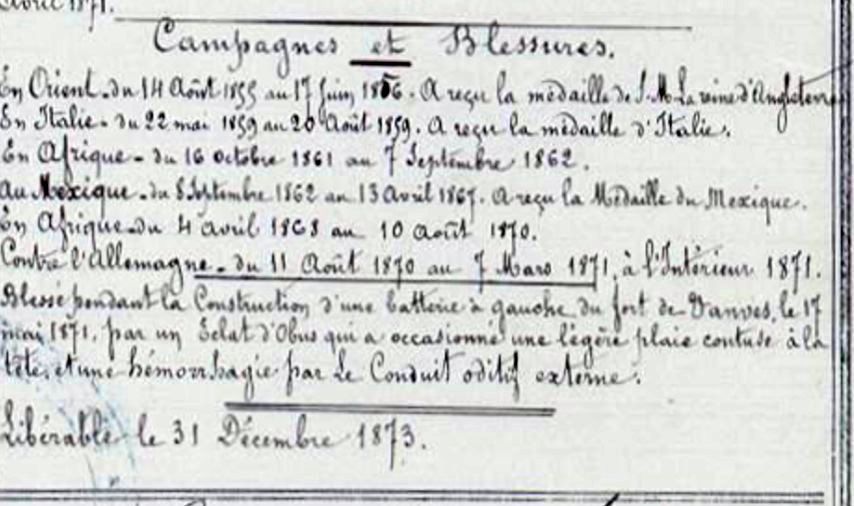 Avril 1871.
Campagnes et Blessures.
En Orient - du 14 Août 1855 au 17 juin 1856. A reçu la médaille de S. M. La reine d'Angleterre
En Italie - du 22 mai 1859 au 20 Août 1859. A reçu la médaille d'Italie.
En Afrique - du 16 octobre 1861 au 7 Septembre 1862.
Au Mexique - du 8 Septembre 1862 au 13 Avril 1867. A reçu la Médaille du Mexique.
En Afrique - du 4 avril 1868 au 10 Août 1870.
Contre l'Allemagne - du 11 Août 1870 au 7 Mars 1871, à l'Intérieur 1871.
Blessé pendant la Construction d'une batterie à gauche du fort de Vanves, le 17
mai 1871, par un Eclat d'Obus qui a occasionné une légère plaie contuse à la
tête, et une hémorrhagie par Le Conduit oditif externe.
Libérable le 31 Décembre 1873.